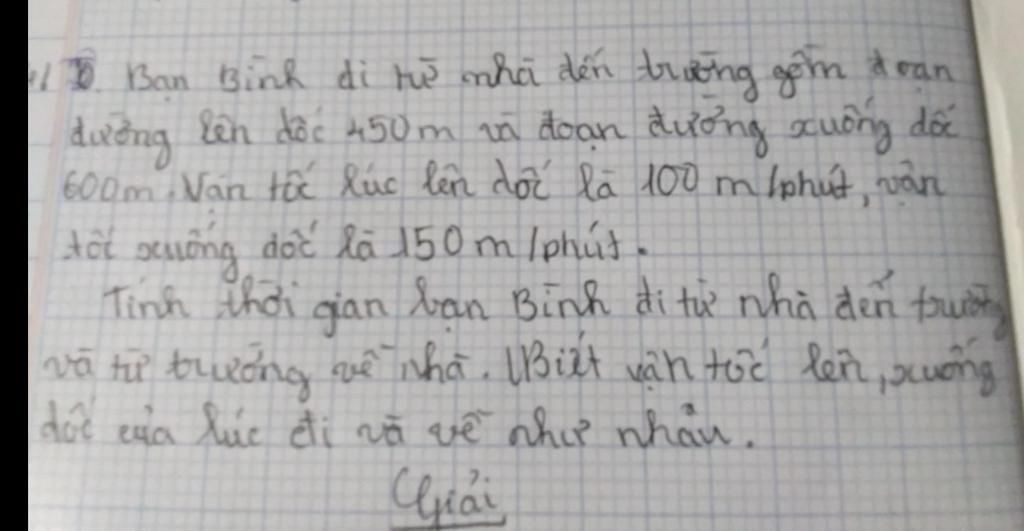 Bạn Bình đi từ nhà đến trường gồm đoạn
đường lên dốc 450m và đoạn đường xuống dốc
600m. Vận tốc lúc lên dốc là 100 m/phút, vận
tốc xuống dốc là 150 m/phút.
Tính thời gian bạn Bình đi từ nhà đến trường
và từ trường về nhà. (Biết vận tốc lên, xuống
dốc của lúc đi và về như nhau.
Giải